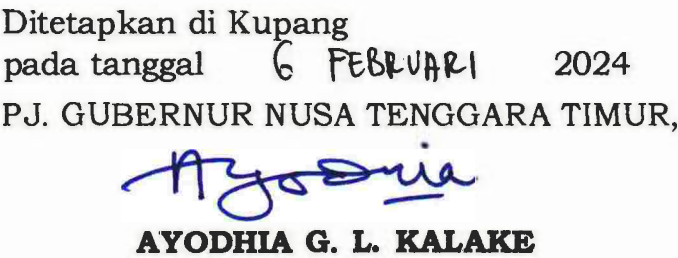 Ditetapkan di Kupang
pada tanggal 6 FEBRUARI 2024
PJ. GUBERNUR NUSA TENGGARA TIMUR,
Ayodhia
AYODHIA G. L. KALAKE